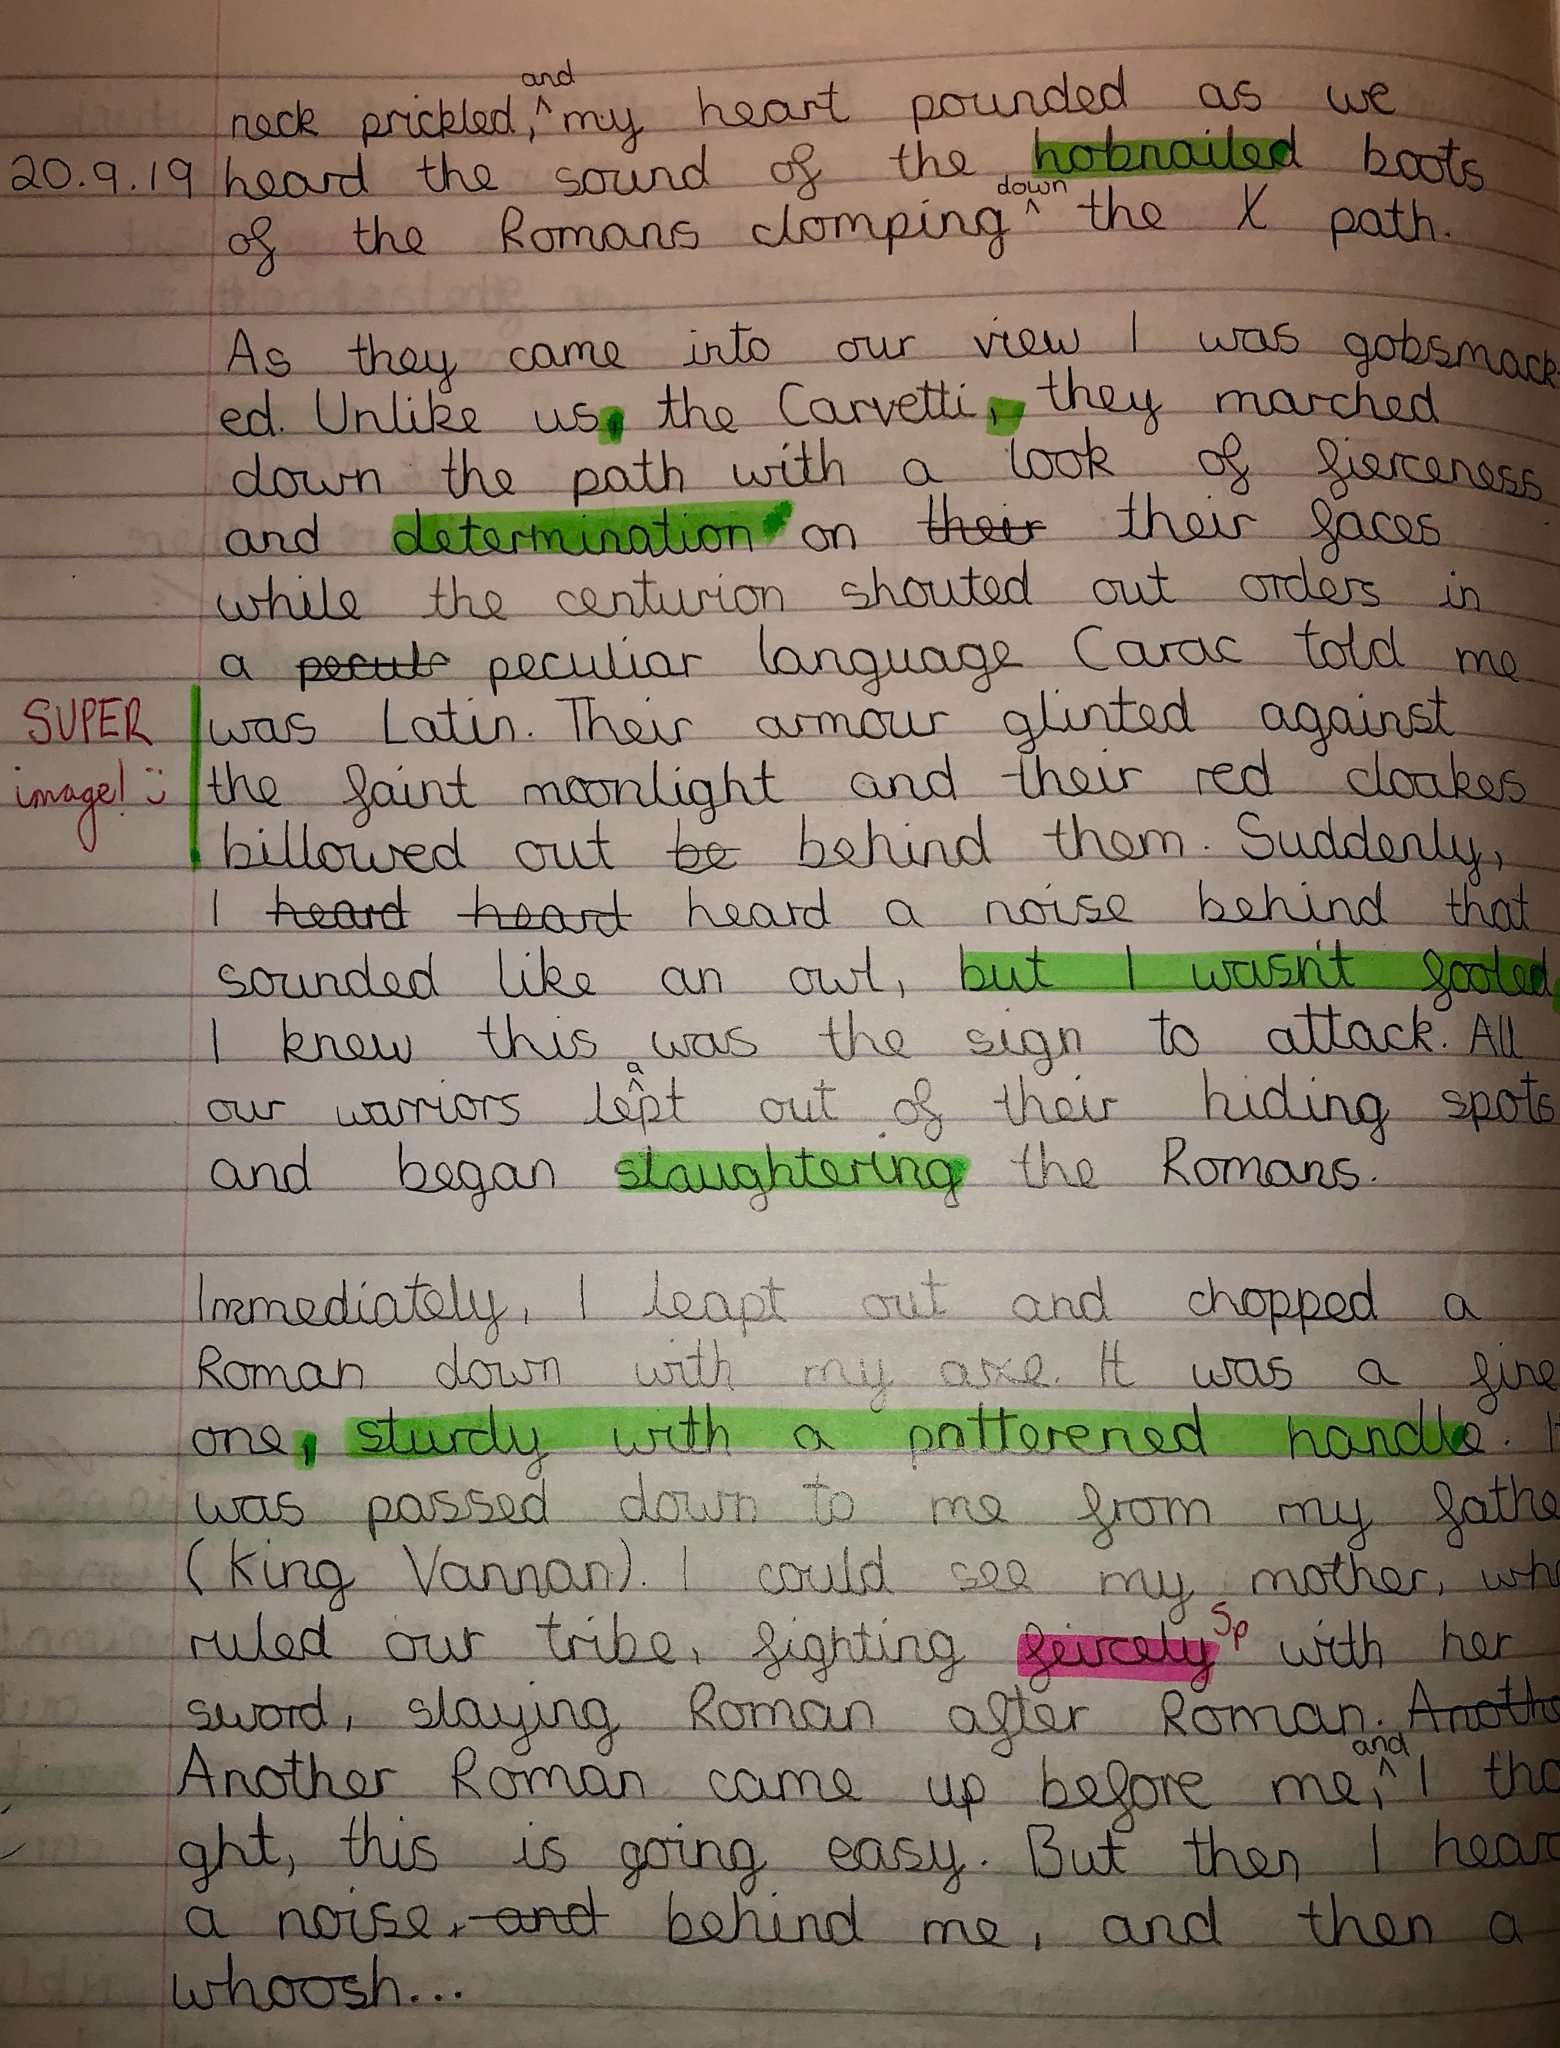 and
neck prickled, ^ my heart pounded as we
20.9.19 heard the sound of the hobnailed boots
down
of the Romans clomping ^ the X path.
As they came into our view I was gobsmack-
ed. Unlike us, the Carvetti, they marched
down the path with a look of fierceness
and determination on their their faces
while the centurion shouted out orders in
a pecul peculiar language Carac told me
SUPER was Latin. Their armour glinted against
image! :) the faint moonlight and their red cloakes
billowed out be behind them. Suddenly,
I heard heard heard a noise behind that
sounded like an owl, but I wasn't fooled,
I knew this was the sign to attack. All
a
our warriors le^pt out of their hiding spots
and began slaughtering the Romans.
Immediately, I leapt out and chopped a
Roman down with my axe. It was a fine
one, sturdy with a patterened handle. I
was passed down to me from my fathe
(King Vannan). I could see my mother, wh
ruled our tribe, fighting feircely Sp with her
sword, slaying Roman after Roman. Anoth
and
Another Roman came up before me, ^ I tho
ght, this is going easy. But then I hear
a noise, and behind me, and then a
whoosh...